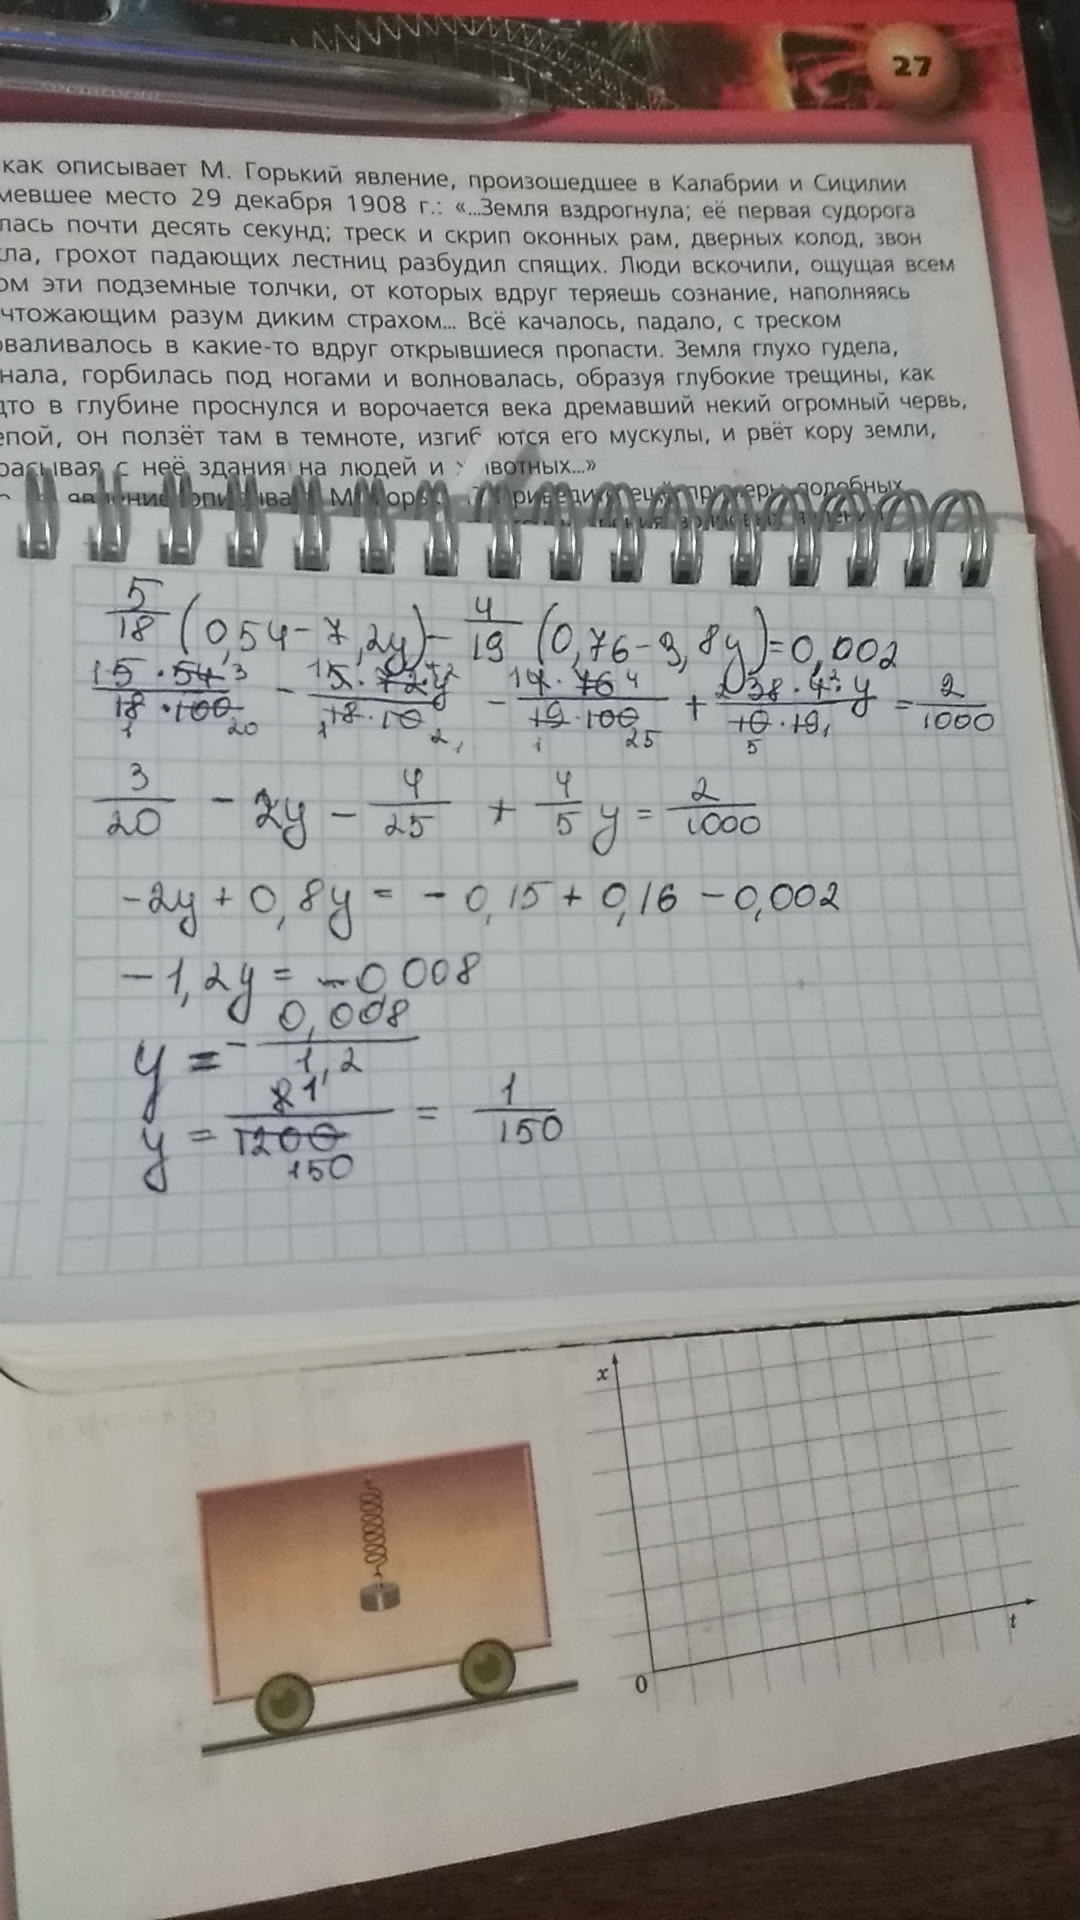 27
как описывает М. Горький явление, произошедшее в Калабрии и Сицилии
мевшее место 29 декабря 1908 г.: «...Земля вздрогнула; её первая судорога
лась почти десять секунд; треск и скрип оконных рам, дверных колод, звон
ла, грохот падающих лестниц разбудил спящих. Люди вскочили, ощущая всем
ом эти подземные толчки, от которых вдруг теряешь сознание, наполняясь
чтожающим разум диким страхом... Всё качалось, падало, с треском
оваливалось в какие-то вдруг открывшиеся пропасти. Земля глухо гудела,
нала, горбилась под ногами и волновалась, образуя глубокие трещины, как
дто в глубине проснулся и ворочается века дремавший некий огромный червь,
епой, он ползёт там в темноте, изгиб ются его мускулы, и рвёт кору земли,
расывая с неё здания на людей и ивотных...»
подобных
5/18 (0,54 - 7,2y) - 4/19 (0,76 - 3,8y) = 0,002
15·543/18·100 20 - 15·72·y/18·10 - 14·76 4/19·100 25 + 38·4·y/10·19 5 = 2/1000
3/20 - 2y - 4/25 + 4/5 y = 2/1000
-2y + 0,8y = -0,15 + 0,16 - 0,002
-1,2y = -0,008
y = - 0,008/1,2
y = 81/1200 150 = 1/150
x
0
t